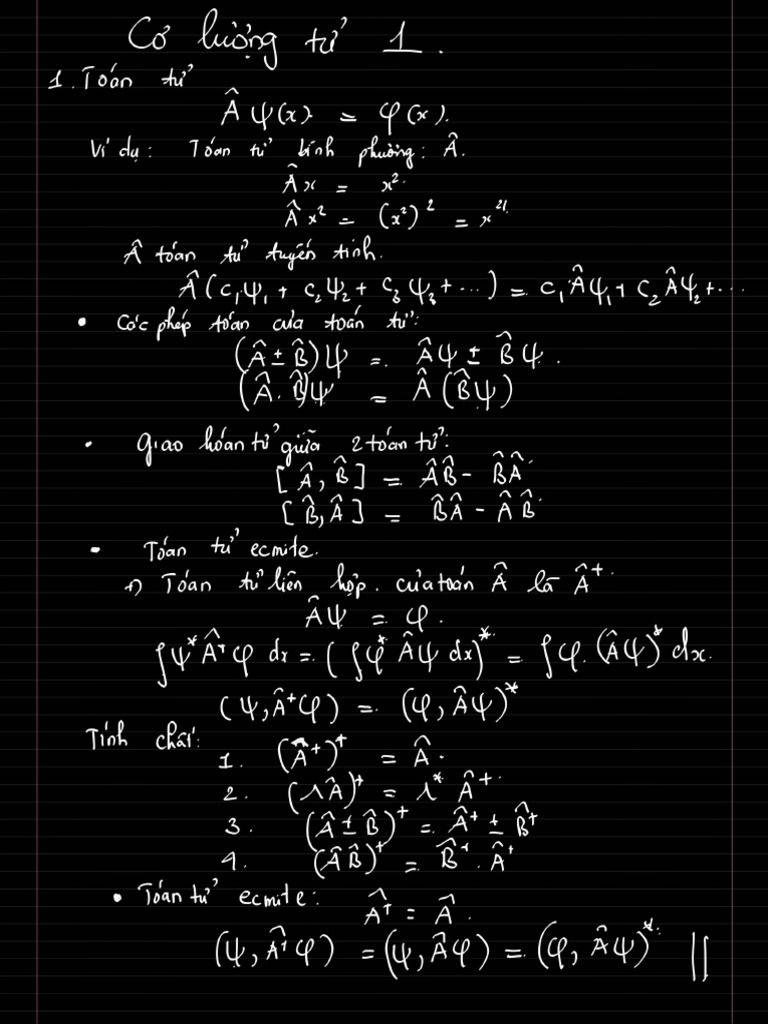 Cơ lượng tử 1.
1. Toán tử
Âψ(x) = φ(x).
Ví dụ: Toán tử bình phương: Â.
Âx = x².
Âx² = (x²)² = x⁴
Â toán tử tuyến tính.
Â(c₁ψ₁ + c₂ψ₂ + c₃ψ₃ + ...) = c₁Âψ₁ + c₂Âψ₂ + ...
• Các phép toán của toán tử:
(Â ± B̂)ψ = Âψ ± B̂ψ.
(Â.B̂)ψ = Â(B̂ψ)
• Giao hoán tử giữa 2 toán tử:
[Â, B̂] = ÂB̂ - B̂Â
[B̂, Â] = B̂Â - ÂB̂
• Toán tử ecmite.
+) Toán tử liên hợp. của toán Â là Â⁺.
Âψ = φ.
∫ψ*Â⁺φ dx = (∫φ*Âψ dx)* = ∫φ.(Âψ)* dx.
(ψ, Â⁺φ) = (φ, Âψ)*
Tính chất:
1. (Â⁺)⁺ = Â.
2. (λÂ)⁺ = λ* Â⁺.
3. (Â ± B̂)⁺ = Â⁺ ± B̂⁺
4. (ÂB̂)⁺ = B̂⁺.Â⁺
• Toán tử ecmite: Â⁺ = Â.
(ψ, Â⁺φ) = (ψ, Âφ) = (φ, Âψ)* ||